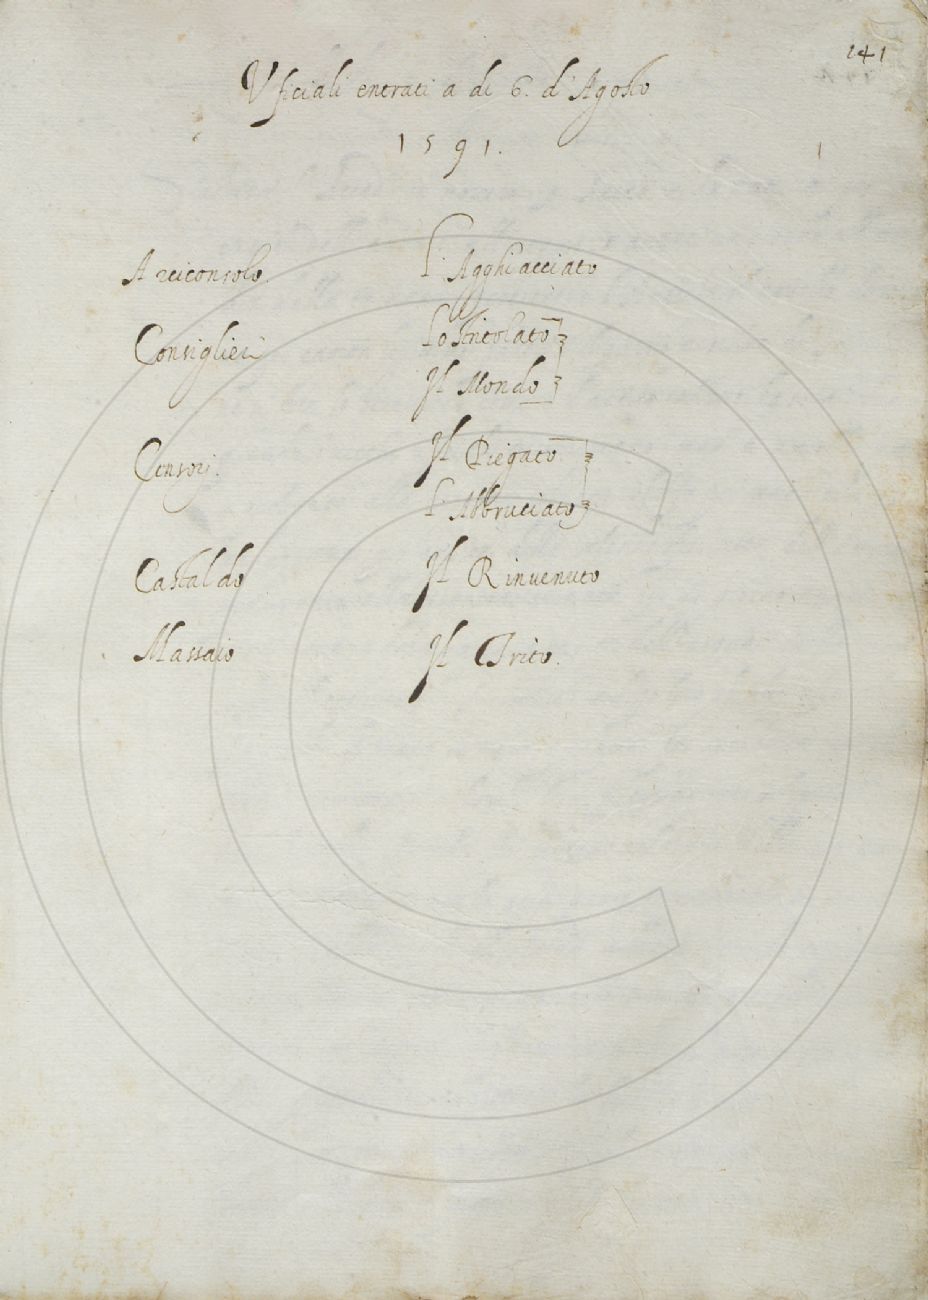 141
Uficiali entrati a di 6. d'Agosto
1591.
Arciconsolo. l'Agghiacciato
Consiglieri Lo Stritolato
Il Mondo
Censori. Il Piegato
l'Abbruciato
Castaldo Il Rinvenuto
Massaio Il Trito.